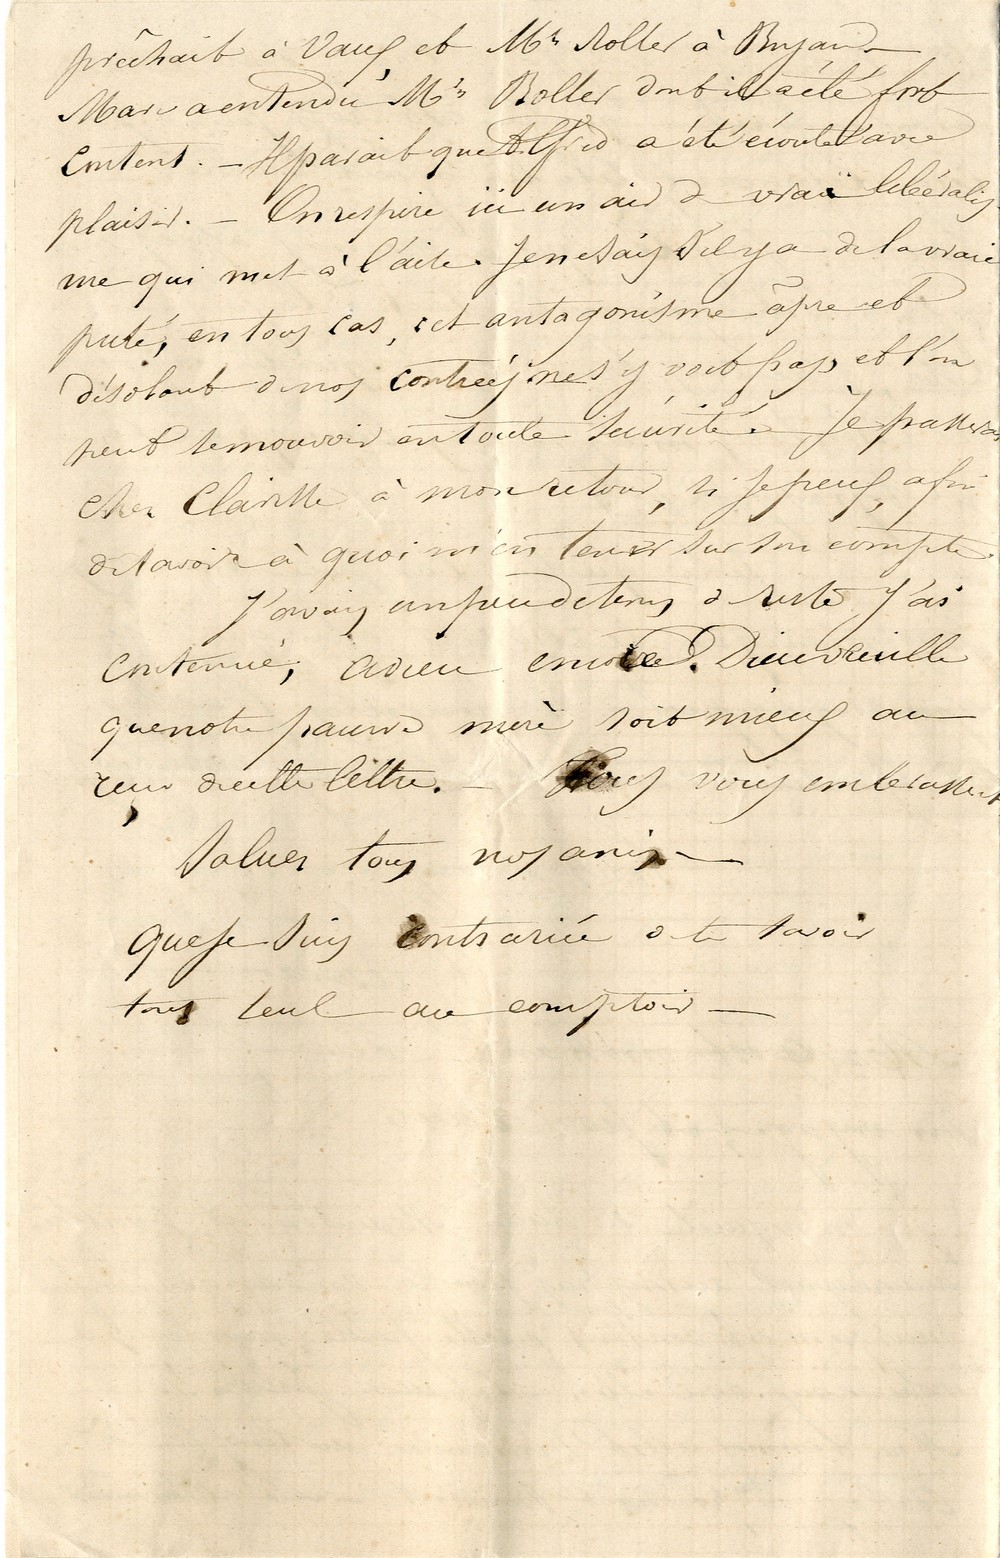 prêchait à Vaux et Mr Roller à Bryan –
Marc a entendu Mr Roller dont il a été fort
content. – Il parait que Alfred a été écouté avec
plaisir. – On respire ici un air de vrai libéralis
me qui met à l'aise. Je ne sais s'il y a de la vraie
piété, en tous cas, cet antagonisme âpre et
désolant de nos contrées ne s'y voit pas et l'on
peut se mouvoir en toute sécurité. Je passerai
chez Clarisse à mon retour, si je peux, afin
de savoir à quoi m'en tenir sur son compte.
J'avais un peu de tems de reste j'ai
continué, adieu encore. Dieu veuille
que notre pauvre mère soit mieux au
reçu de cette lettre. – Tous vous embrassent
Saluez tous nos amis –
Que je suis contrariée de te savoir
tout seul au comptoir –